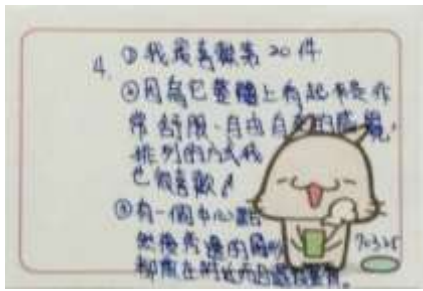 4. ①我最喜歡第20件
②因為它整體上看起來是非
常舒服、自由自在的感覺,
排列的方式我
也很喜歡!
③有一個中心點
然後旁邊的圖形
都靠在附近而且
70325